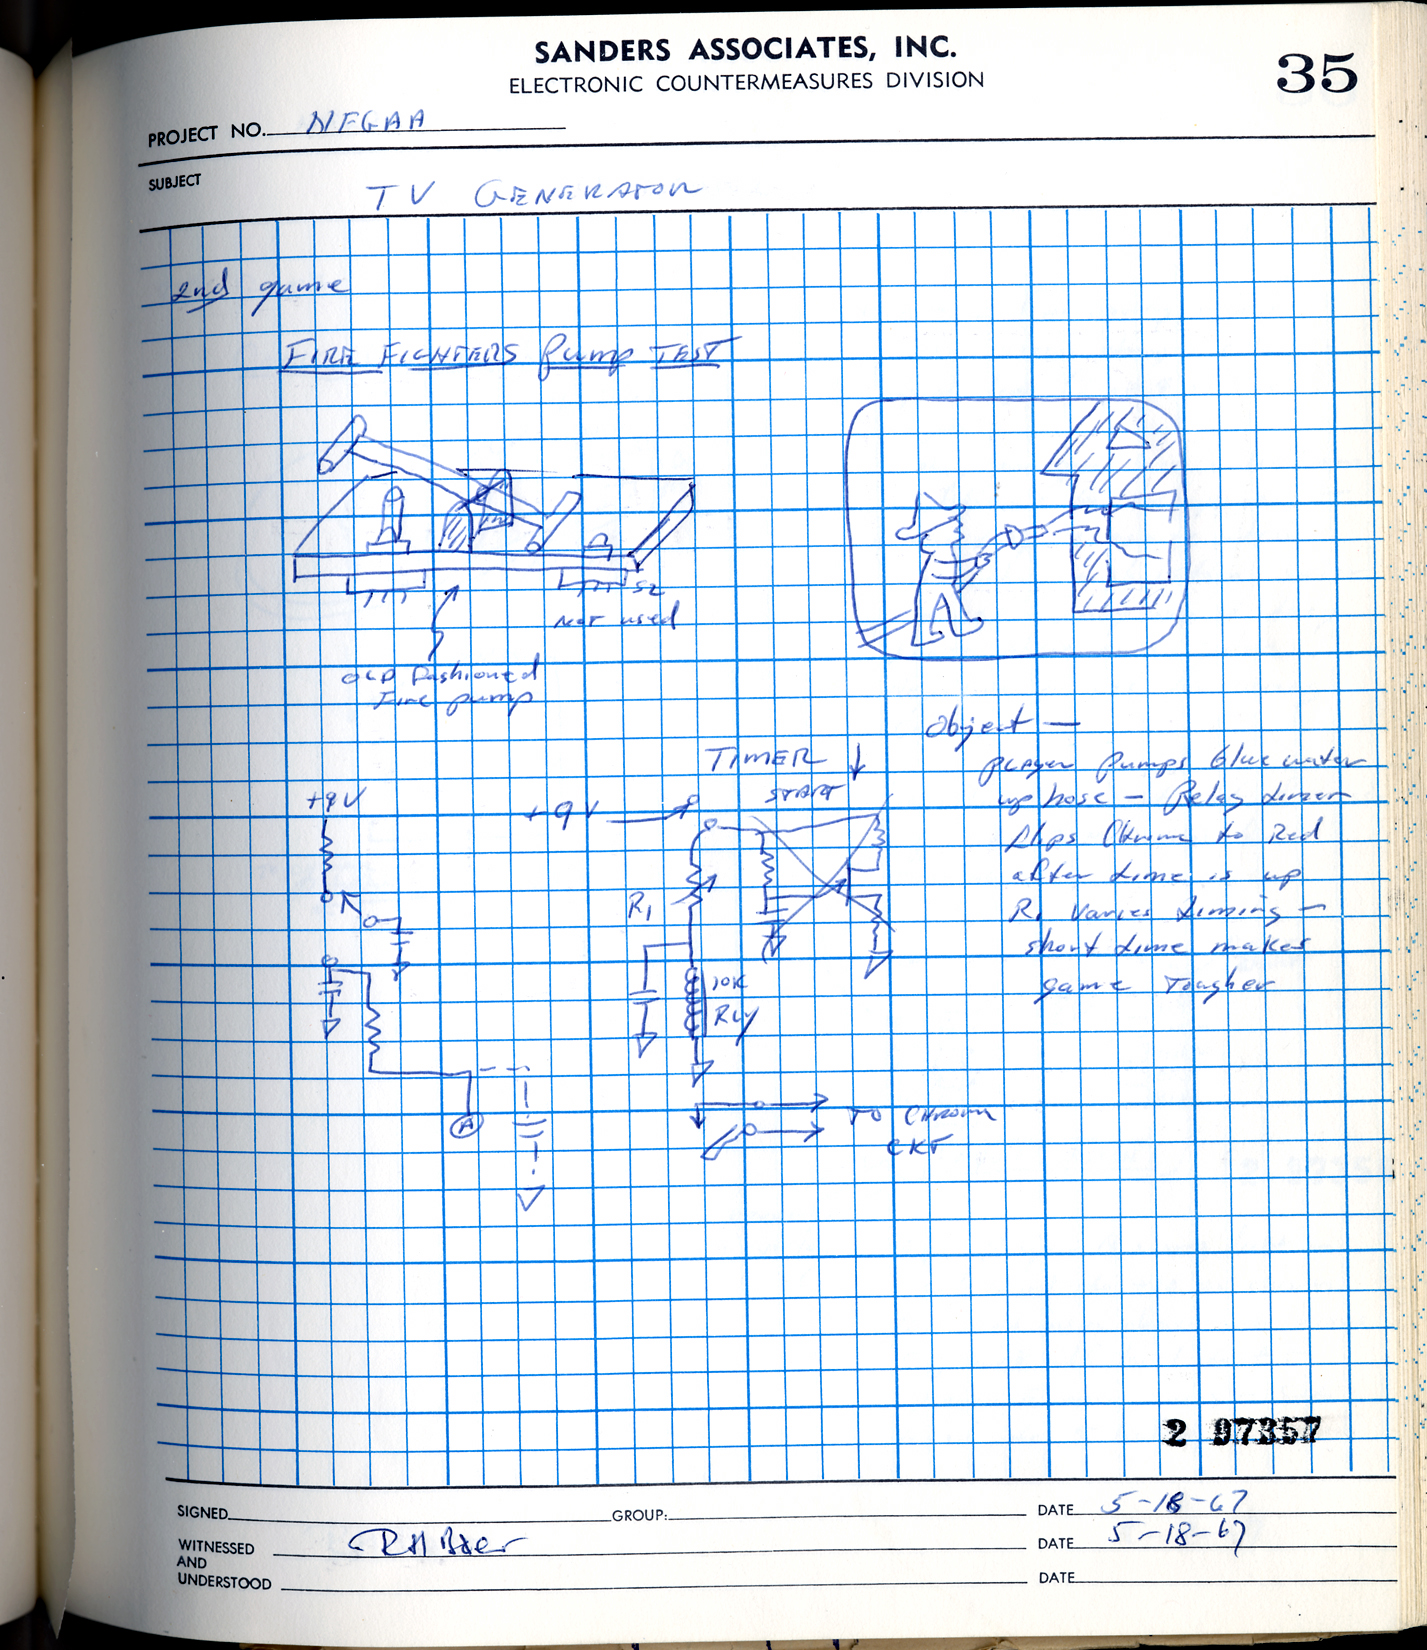 SANDERS ASSOCIATES, INC.
ELECTRONIC COUNTERMEASURES DIVISION
35
PROJECT NO. NEGAA
SUBJECT
TV GENERATOR
2nd game
FIRE FIGHTERS Pump TEST
S2
Not used
OLD Fashioned
Fire pump
Object —
PLAYER Pumps blue water
up hose — Relay timer
flips Chroma to Red
after time is up
R1 Varies timing —
short time makes
game Tougher
TIMER
START
+9V
+9V
R1
10K
RLY
A
TO CHROMA
CKT
2 97357
SIGNED
GROUP:
DATE 5-18-67
WITNESSED
AND
UNDERSTOOD
RH Baer
DATE 5-18-67
DATE